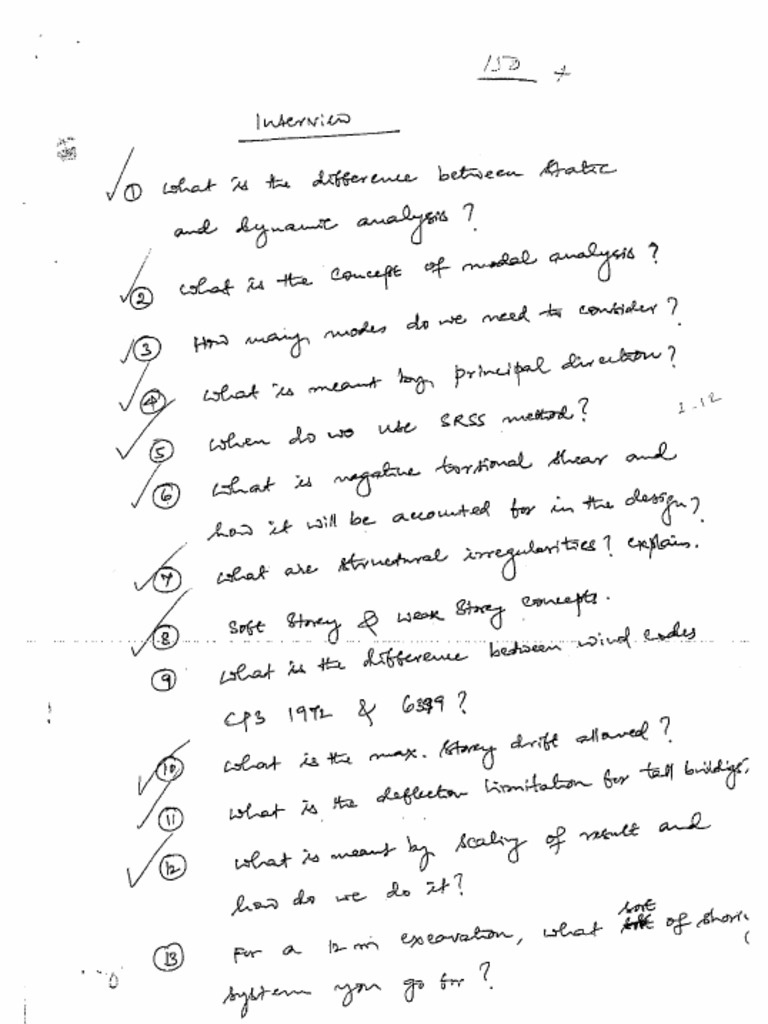 Interview
① What is the difference between static
and dynamic analysis?
② What is the concept of modal analysis?
③ How many modes do we need to consider?
④ What is meant by principal direction?
1-12
⑤ When do we use SRSS method?
⑥ What is negative torsional shear and
how it will be accounted for in the design?
⑦ What are structural irregularities? explain.
⑧ Soft Storey & weak Storey concepts.
⑨ What is the difference between wind codes
CP3 1972 & 6399?
⑩ What is the max. Storey drift allowed?
⑪ What is the deflection limitation for tall buildigs.
⑫ What is meant by scaling of result and
how do we do it?
⑬ For a 12 m excavation, what sort of shorin
system you go for?